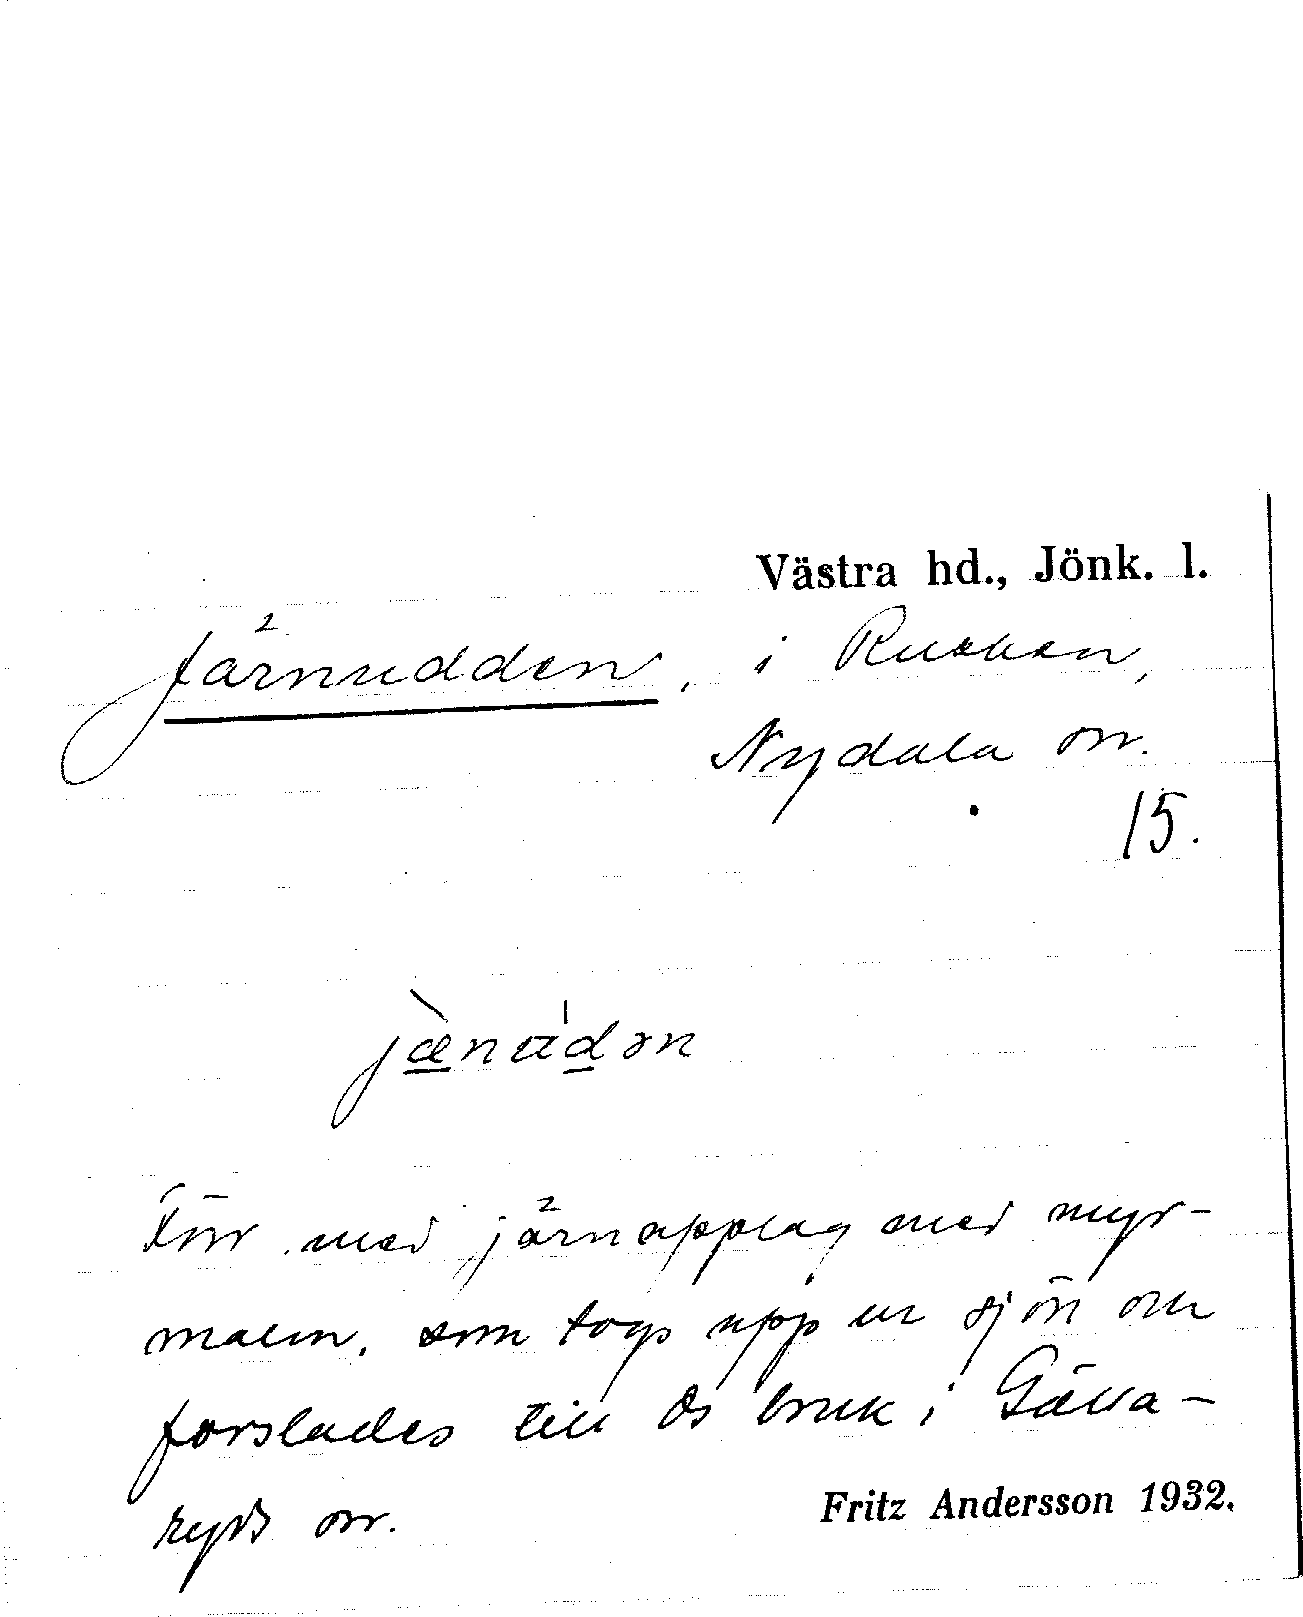 Västra hd., Jönk. l.
Järnudden, i Rusken,
Nydala sn.
15.
jæ̀nu̇dən
Förr med järnupplag med myr-
malm, som togs upp ur sjön och
forslades till Os bruk i Gälla-
ryds sn.
Fritz Andersson 1932.